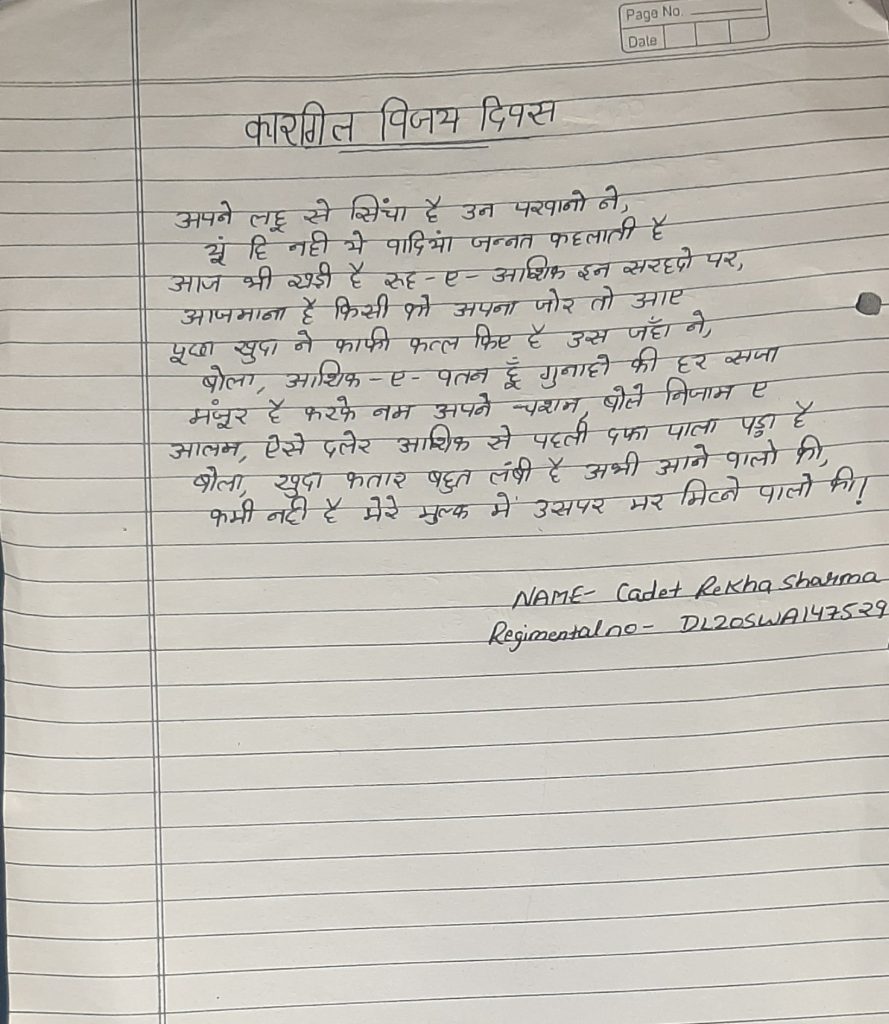 Page No.
Date
कारगिल विजय दिवस
अपने लहू से सिंचा है उन परवानो ने,
यूं हि नही ये वादियां जन्नत कहलाती है
आज भी खडी है रुह-ए-आशिक इन सरहदो पर,
आजमाना है किसी को अपना जोर तो आए
पूछा खुदा ने काफी कत्ल किए है उस जहाँ ने,
बोला, आशिक-ए-वतन हूँ गुनाहो की हर सजा
मंजूर है करके नम अपने चशम, बोले निजाम ए
आलम, ऐसे दलेर आशिक से पहली दफा पाला पड़ा है
बोला, खुदा कतार बहुत लंबी है अभी आने वालो की,
कमी नही है मेरे मुल्क में उसपर मर मिटने वालो की!
NAME- Cadet Rekha Sharma
Regimental no- DL20SWA147529